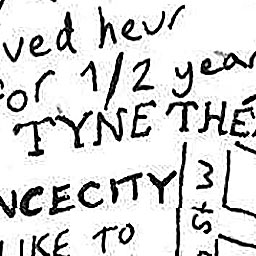 ved heur
for 1/2 year
TYNE THE
NCECITY
3
LIKE TO